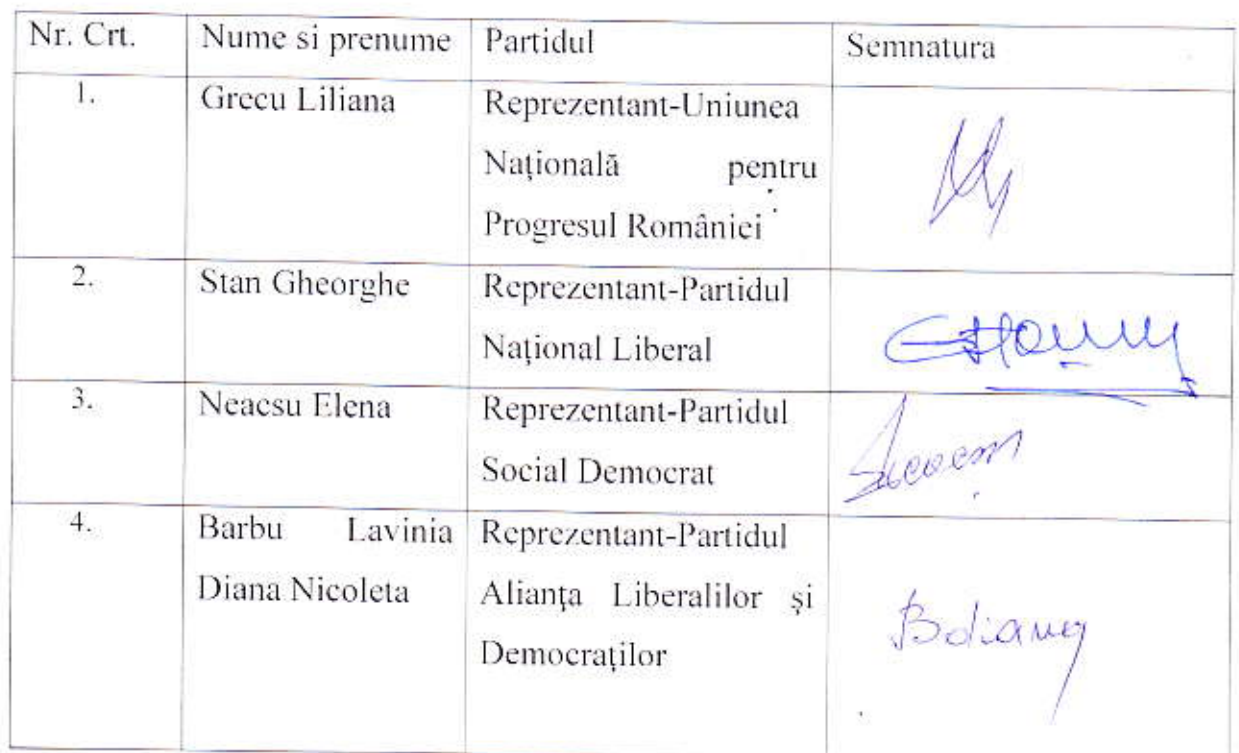 Nr. Crt. Nume si prenume Partidul Semnatura
1. Grecu Liliana Reprezentant-Uniunea
Națională pentru
Progresul României
2. Stan Gheorghe Reprezentant-Partidul
Național Liberal
3. Neacsu Elena Reprezentant-Partidul
Social Democrat
4. Barbu Lavinia Reprezentant-Partidul
Diana Nicoleta Alianța Liberalilor și
Democraților